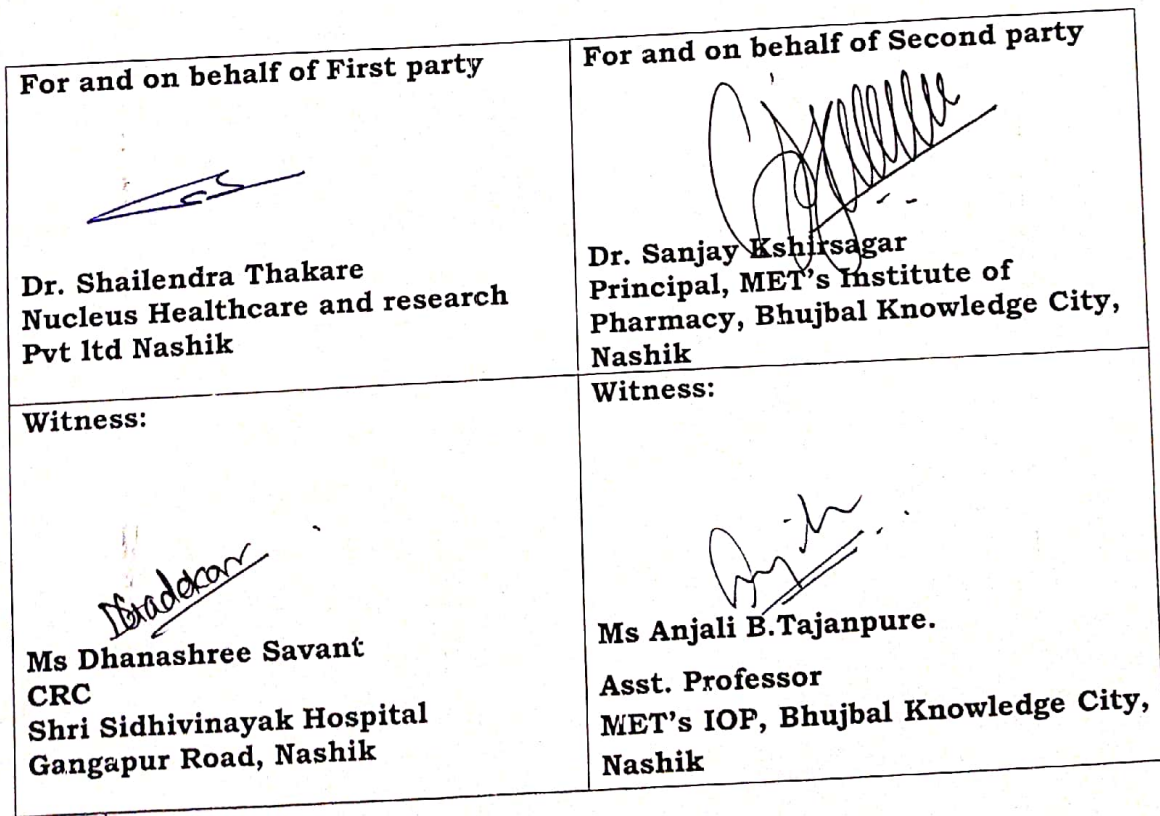 For and on behalf of First party
Dr. Shailendra Thakare
Nucleus Healthcare and research
Pvt ltd Nashik
For and on behalf of Second party
Dr. Sanjay Kshirsagar
Principal, MET's Institute of
Pharmacy, Bhujbal Knowledge City,
Nashik
Witness:
Ms Dhanashree Savant
CRC
Shri Sidhivinayak Hospital
Gangapur Road, Nashik
Witness:
Ms Anjali B.Tajanpure.
Asst. Professor
MET's IOP, Bhujbal Knowledge City,
Nashik